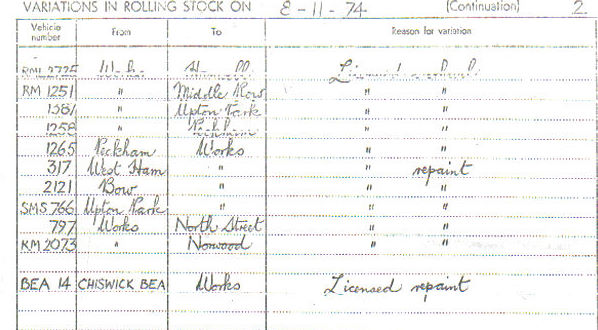 VARIATIONS IN ROLLING STOCK ON 8-11-74 (Continuation) 2
Vehicle number From To Reason for variation
RML 2725 Works Licensed
RM 1251 " Middle Row " "
1381 " Upton Park " "
1258 " Peckham " "
1265 Peckham Works " "
317 West Ham " " repaint
2121 Bow " " "
SMS 766 Upton Park " " "
797 Works North Street " "
RM 2073 " Norwood " "
BEA 14 CHISWICK BEA Works Licensed repaint